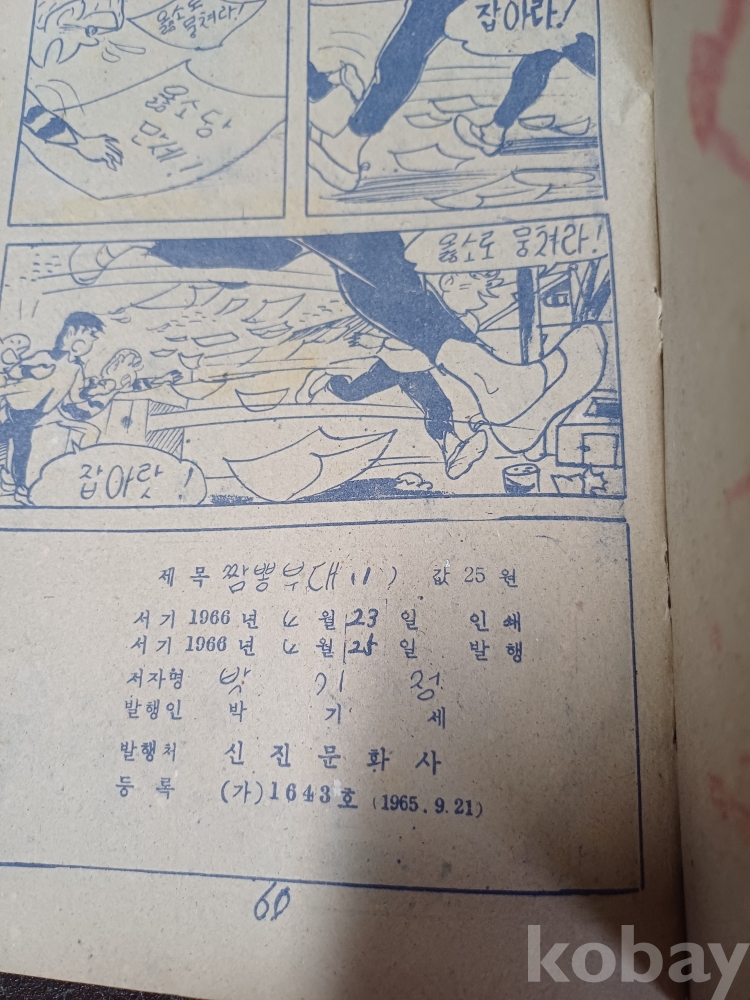 옳소로
뭉쳐라!
옳소당
만세!
잡아라!
옳소로 뭉쳐라!
잡아랏!
제 목 짬뽕부대 11) 값 25 원
서기 1966 년 4 월 23 일 인 쇄
서기 1966 년 4 월 25 일 발 행
저자명 박 기 정
발행인 박 기 세
발행처 신 진 문 화 사
등 록 (가) 1643호 (1965. 9. 21)
60
kobay